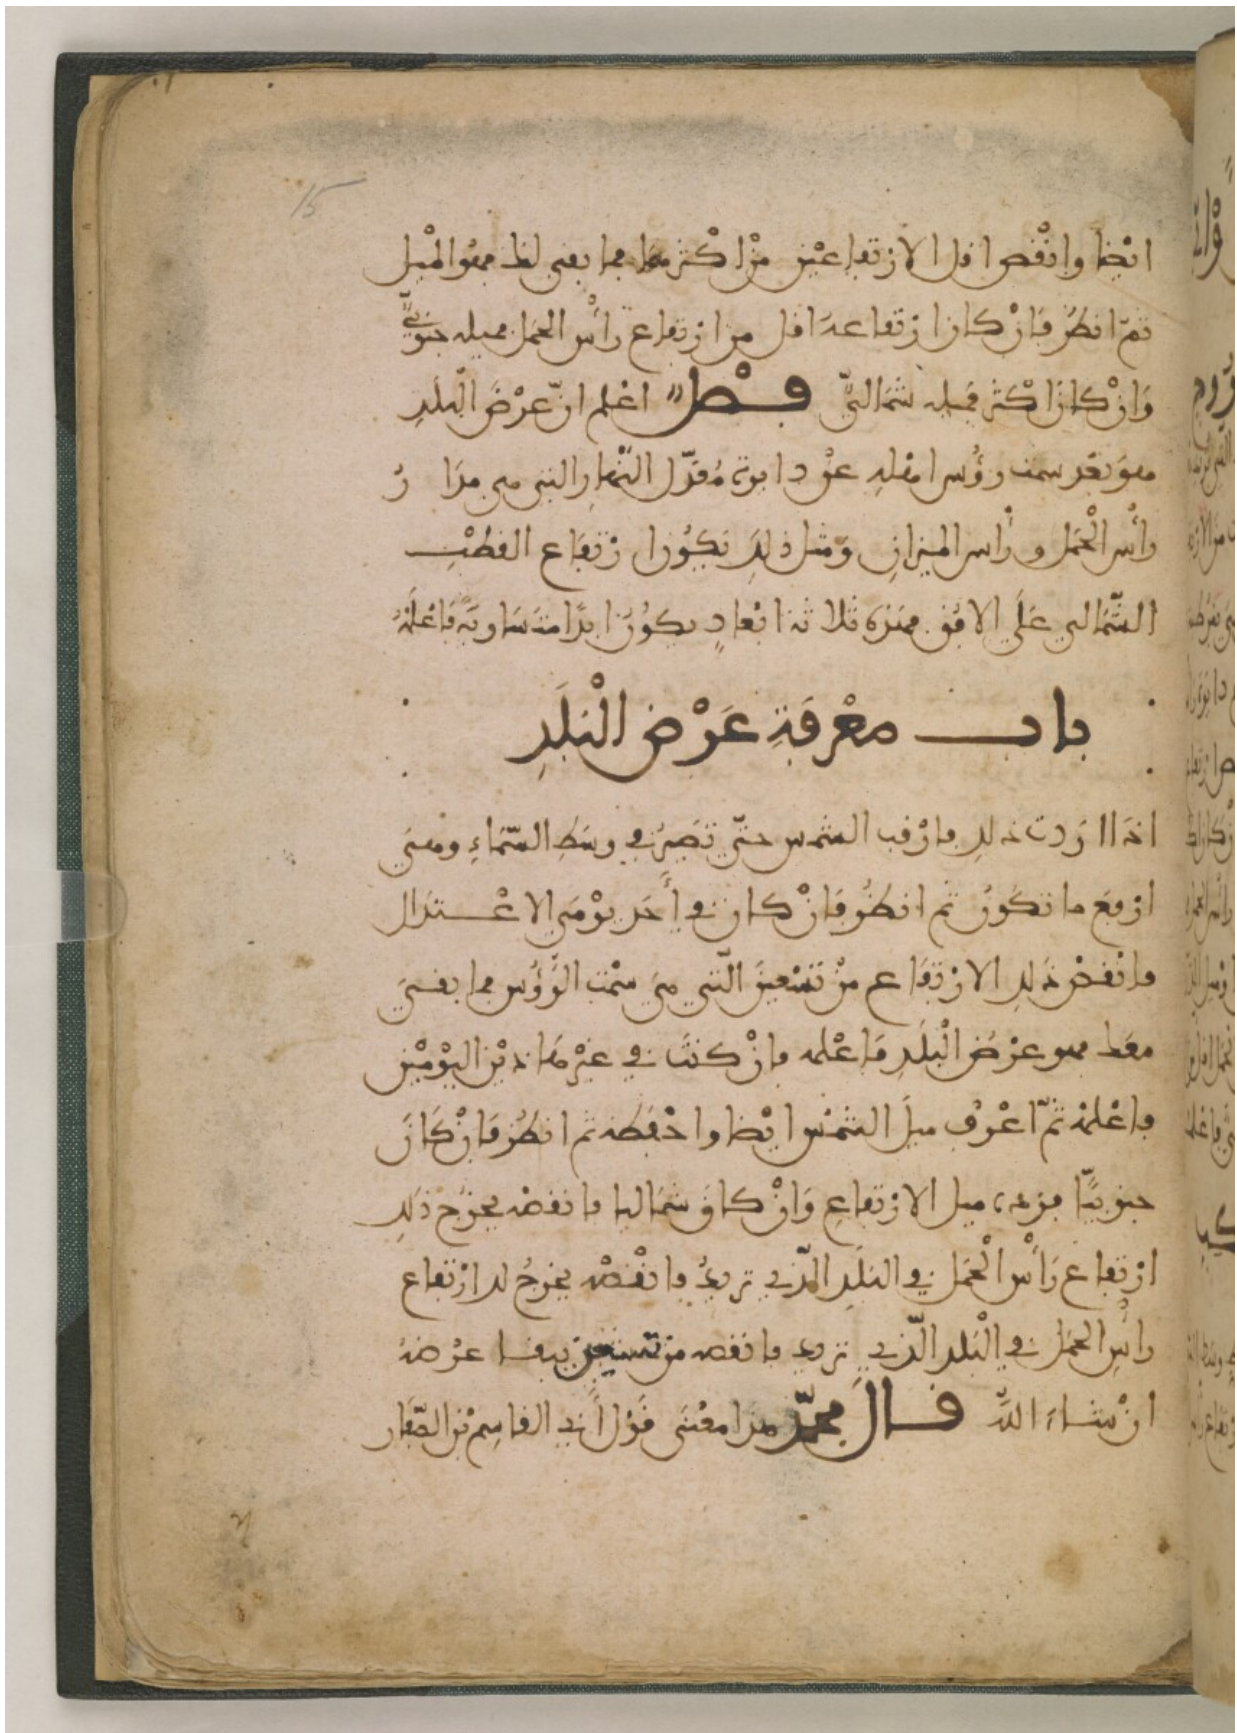 15
ايْضا وانْقُص اقل الارتفاعيْن منْ اكْثرهما فما بقي لك فهُو الميْل
ثمّ انظُر فَانْ كان ارتفاعهَا اقل من ارتفاع رأْس الحمَل فميله جنوبيٌّ
وَانْ كانَ اكْثر فميله شماليٌّ فــصْل اعْلم انّ عرْضَ البلَدِ
هو بعْد سمت رؤُس اهله عنْ دايرة مُعَدّل النّهارِ التي هي مدَارُ
رأْس الْحَمَل و رأْس الميزانِ وَمثل ذلِكَ يكُونُ ارْتفَاع القطْبِ
الشّمالي عَلَي الافُق فهذه ثلاثة ابْعادٍ يكوُن ابدًا متَسَاويَة فَاعْلَمْهُ
بابــــ معْرفَةِ عَرْض الْبَلَدِ
اذا ارَدت ذلك فارْقب الشمس حتّي تصِيرَ في وسَطِ السّمَاءِ وهي
ارْفعَ ما تكُونُ ثم انظُر فَانْ كان في أَحَد يوْمَي الاعْــتدَال
فانْقصْ ذَلك الارْتفَاع منْ تسْعينَ الّتي هيَ سمْت الرُّؤُس فما بقــيَ
معَك فهو عرْض الْبلَدِ فَاعْلمه فانْ كنتَ في غيْر هَاذيْن اليوْميْن
فاعْلمْه ثمّ اعْرف ميلَ الشمْس ايْضا واحْفَظه ثم انظُرْ فَانْ كَانَ
جنوبيًّا فزده علي الارْتفاعِ وَانْ كان شماليا فانقصْه يخرُج ذلك
ارْتفاع رَأْس الْحمَل في البلَدِ الّذي تريدُ فانْقُصْه يخرجُ لك ارْتفاع
رأْسِ الحمَل في الْبلد الّذي تريد فانقصه من تسعين يبقــا عرْضهُ
انْ شــاءَ اللَّه قــالَ محمّد هذا معْنَى قَوْل أَبي القاسِم بْن الصّفّار